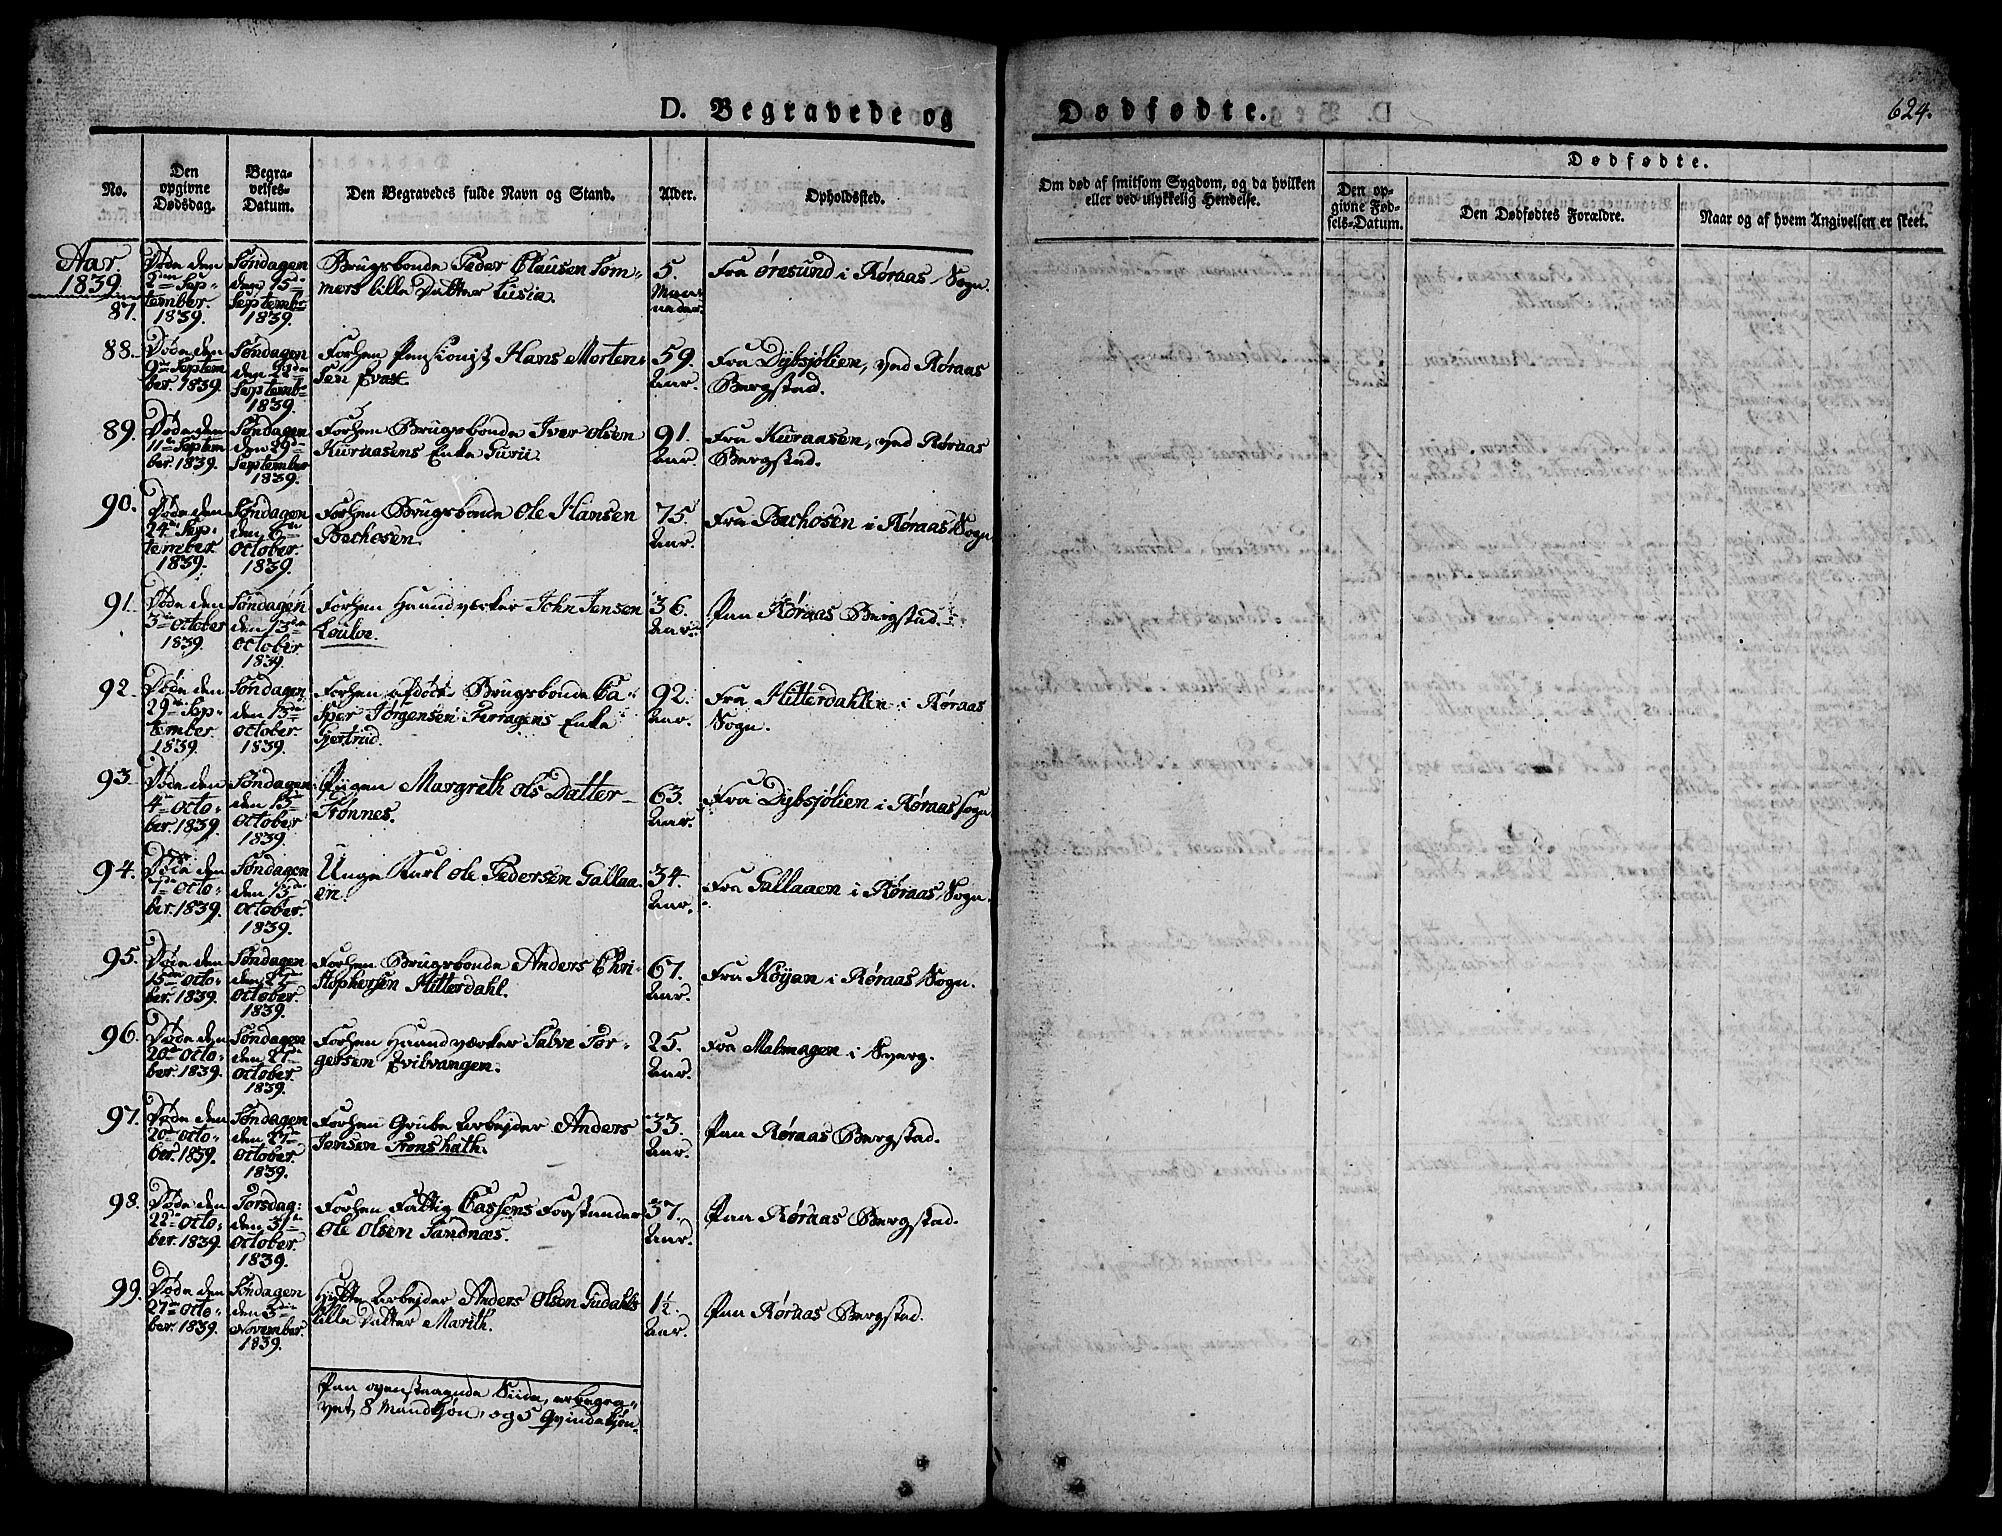 D. Begravede og Dødfødte.
624.
No.
Den opgivne Dødsdag.
Begravelses-Datum.
Den Begravedes fulde Navn og Stand.
Alder.
Opholdssted.
Om død af smitsom Sygdom, og da hvilken
eller ved ulykkelig Hendelse.
Dødfødte.
Den opgivne Fødsels-Datum.
Den Dødfødtes Forældre.
Naar og af hvem Angivelsen er skeet.
Aar
1839.
87.
Døde den
2den Sep-
tember.
1839.
Søndagen
den 15de
Septembr
1839.
Brugsbonde Peder Clausen Søm-
mers lille Datter Lusia.
5.
Maa-
neder.
Fra Øresund i Røraas Sogn.
88.
Døde den
9de Septem
ber. 1839.
Søndagen
den 22de
Septemb.
1839.
Forhen Pensionist Hans Morten-
sen Evax
59.
Aar.
Fra Dybsjølien, ved Røraas
Bergstad.
89.
Døde den
11te Septem
ber. 1839.
Søndagen
den 29de
September
1839.
Forhen Brugsbonde Iver Olsen
Kuraasens Enke Gurii.
91.
Aar.
Fra Kuraasen, ved Røraas
Bergstad.
90.
Døde den
24de Sep-
tember.
1839.
Søndagen
den 6te
October.
1839.
Forhen Brugsbonde Ole Hansen
Bachosen.
75.
Aar.
Fra Bachosen i Røraas Sogn
91.
Døde den
3de October
1839.
Søndagen
den 13de
October.
1839.
Forhen Haandværker John Jensen
36.
Aar.
Paa Røraas Bergstad.
92.
Døde den
29de Sep-
tember.
1839.
Søndagen
den 13de
October
1839.
Forhen afdøde Brugsbonde Ca-
sper Jørgensen Ferragens Enke
Gjertrud.
92.
Aar.
Fra Hitterdahlen i Røraas
Sogn.
93.
Døde den
4de Octo-
ber. 1839.
Søndagen
den 13de
October
1839.
Piigen Margreth Ols Datter
Trønnes.
63.
Aar.
Fra Dybsjølien i Røraas Sogn
94.
Døde den
7de Octo-
ber. 1839.
Søndagen
den 13de
October.
1839.
Unge Karl Ole Pedersen Gallaa-
en.
34.
Aar.
Fra Gallaaen i Røraas Sogn.
95.
Døde den
15de Octo-
ber. 1839.
Søndagen
den 27de
October.
1839.
Forhen Brugsbonde Anders Chri-
stophersen Hitterdahl.
67.
Aar.
Fra Køjan i Røraas Sogn.
96.
Døde den
20de Octo-
ber. 1839.
Søndagen
den 27de
October.
1839.
Forhen Haandværker Salve Tør-
gersen Evilvangen.
25.
Aar.
Fra Malmagen i Sverg.
97.
Døde den
20de Octo-
ber. 1839.
Søndagen
den 27de
October.
1839.
Forhen Grube Arbejder Anders
Jensen Trønshath.
33.
Aar.
Paa Røraas Bergstad.
98.
Døde den
22de Octo-
ber. 1839.
Torsdag-
den 31te
October.
1839.
Forhen Fattig Cassens Forstander
Ole Olsen Sandnæs.
37.
Aar.
Paa Røraas Bergstad.
99.
Døde den
27de Octo-
ber. 1839.
Søndagen
den 3die
November.
1839.
Hytte Arbejder Anders Olsen Sudahls
lille Datter Marith.
1½.
Aar.
Paa Røraas Bergstad.
Paa ovenstaaende Siide, er begra-
vet, 8 Mandkjøn, og 5 Qvindekjøn.